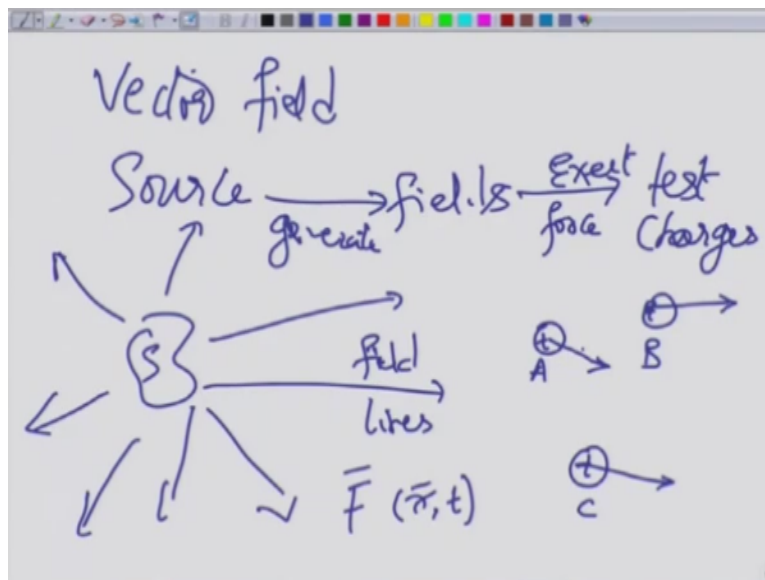 Vector field
Source generate fields Exert force test charges
S
field
lines
A
B
F̅ (x̅, t)
C